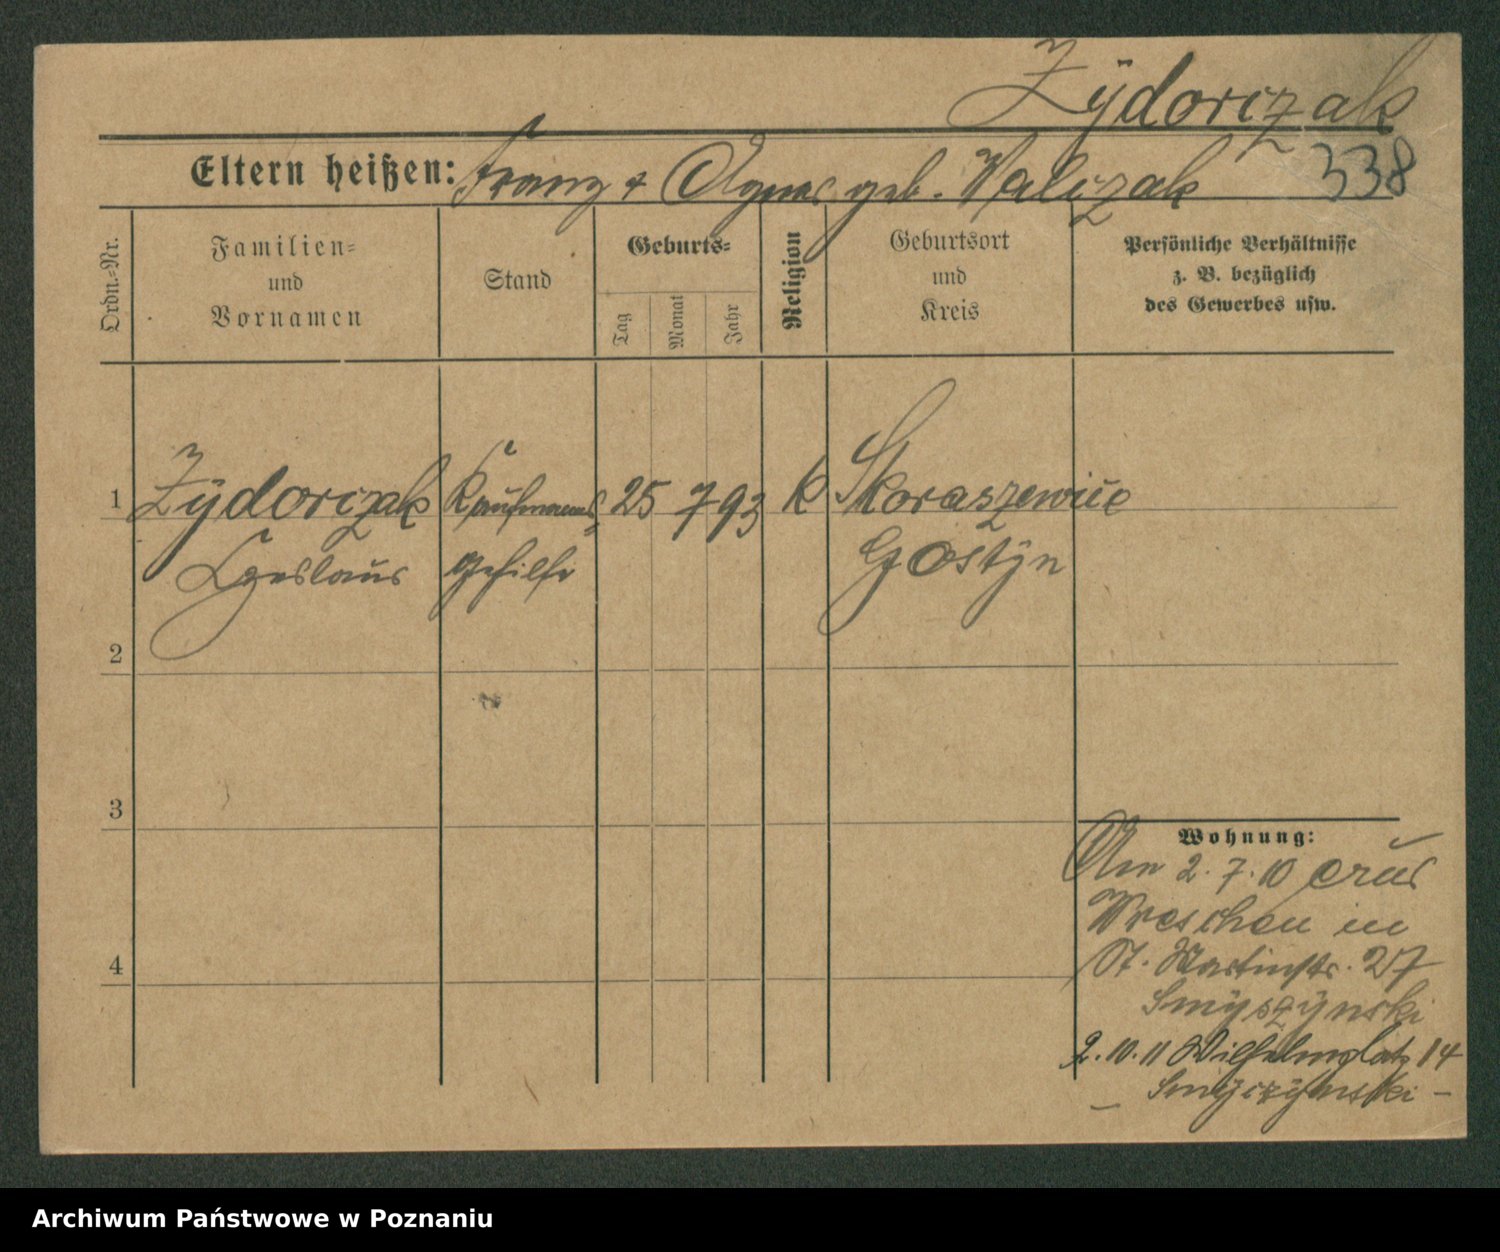 Zÿdorczak
Eltern heißen: Franz & Agnes geb. Walczak 338
Ordn.-Nr.
Familien-
und
Vornamen
Stand
Geburts-
Tag
Monat
Jahr
Religion
Geburtsort
und
Kreis
Persönliche Verhältnisse
z. B. bezüglich
des Gewerbes usw.
1 Zÿdorczak Kaufmanns- 25 7 93 k Skoraszewice
Czeslaus gehilfe Gostÿn
2
3
4
Wohnung:
Am 2. 7. 10 aus
Wreschen in
St. Martinstr. 27
Smÿszÿnski
2. 10. 11 Wilhelmplatz 14
– Smÿczÿnski –
Archiwum Państwowe w Poznaniu